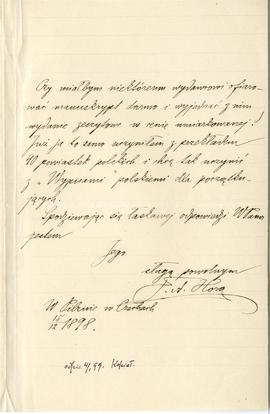 Czy miałbym niektórem wydawcowi ofiaro-
wać manuskrypt darmo i wyjednać z nim
wydanie zeszytowe w cenie umiarkowanej?
Już ja to samo uczyniłem z przekładem
40 powiastek polskich i chcę tak uczynić
z „Wypisami" polskiemi dla początku-
jących.
Spodziewając się łaskawej odpowiedzi WPana
jestem
Jego
sługą powolnym
F. A. Hora
W Pilznie w Czechach
1898.